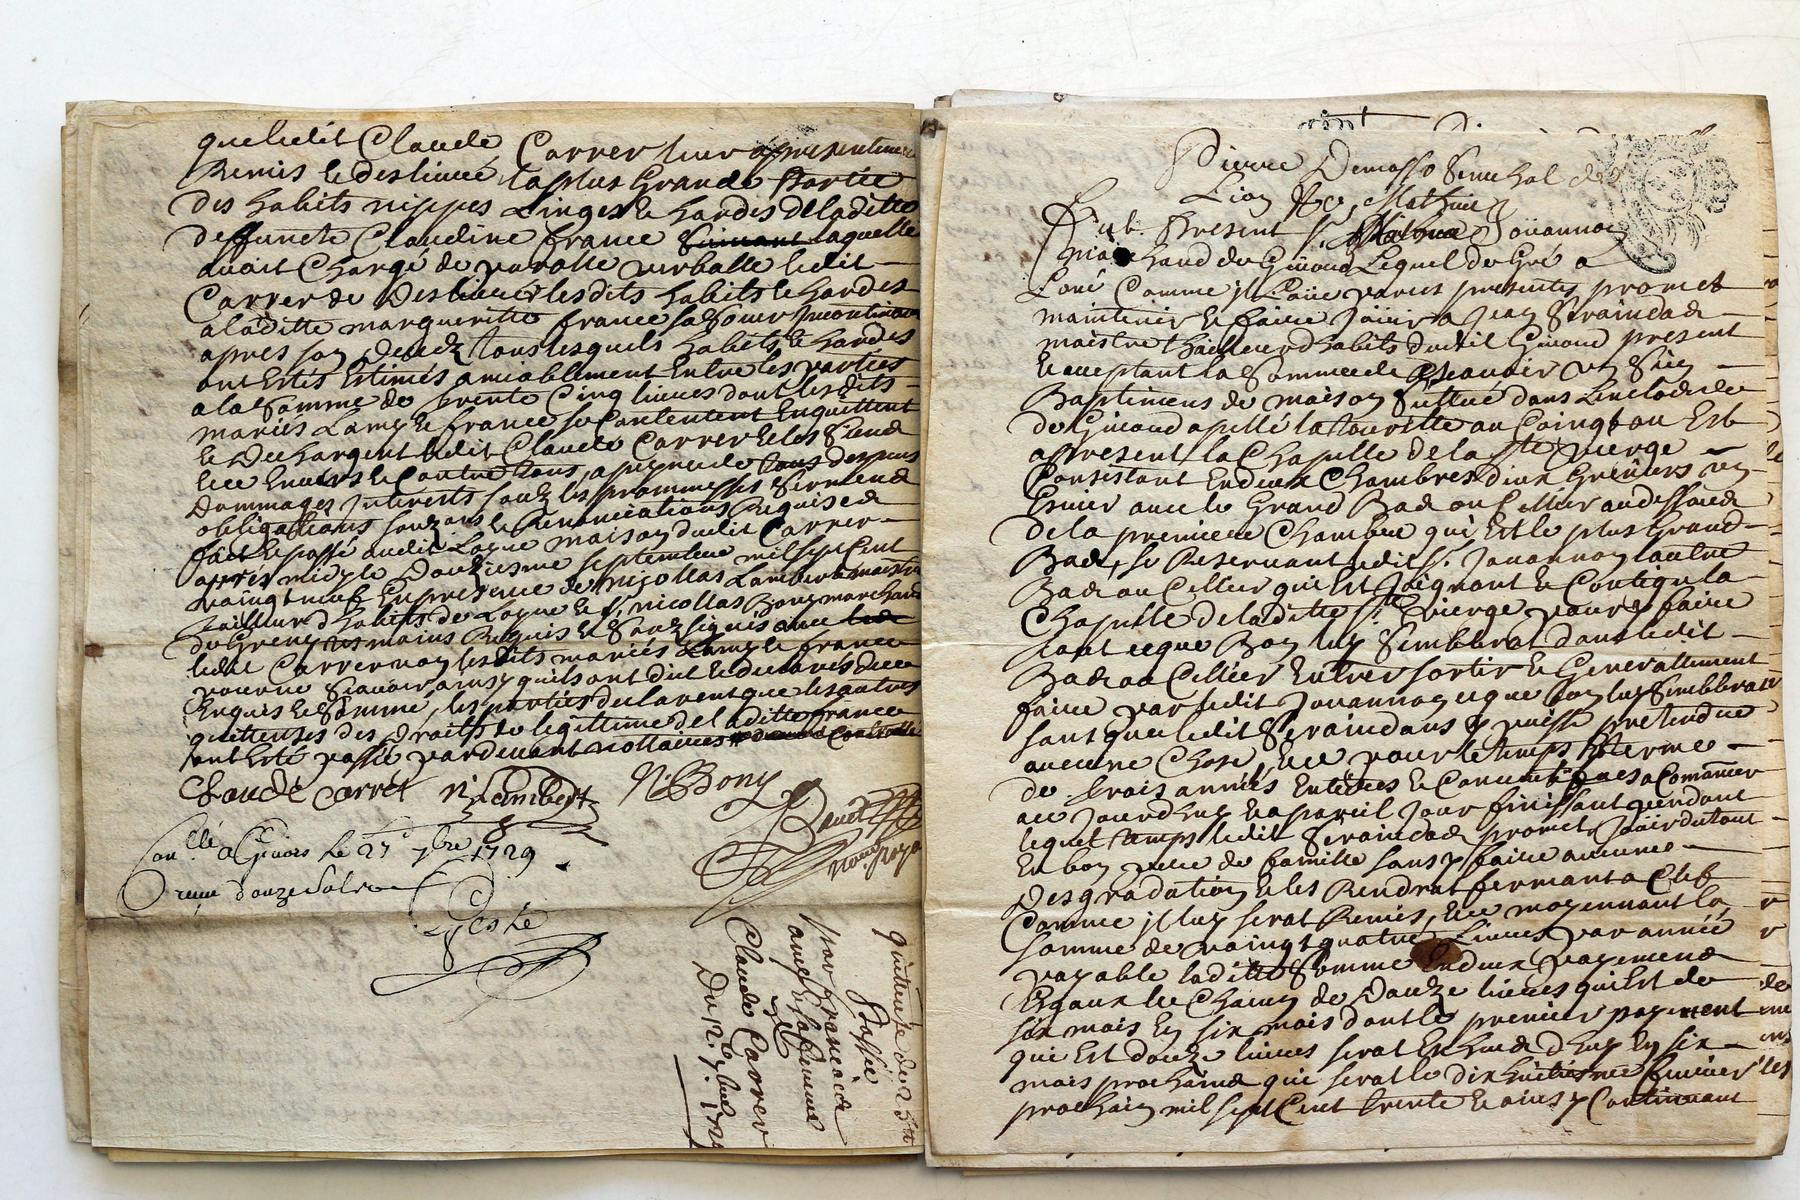 que ledit Claude Carrer leur a presentement
Remis et deslivré la plus Grande Partie
des habits nippes Linges et hardes de laditte
deffuncte Claudine france laquelle
avoit Chargé de parolle verballe ledit
Carrer de Deslivrer lesdits habits et hardes
a laditte margueritte france sa Soeur incontinant
apres son Deced tous lesquels habits et hardes
ont Estés Estimés amiablement Entre les parties
a la Somme de trente Cinq livres dont lesdits
mariés Lamy et france se Contentent Enquittent
et Deschargent ledit Claude Carrer et les Siens
Ecc Envers et Contre tous, a peyne de tous despans
Dommages Interests soubz les promesses Sermens
obligations soubz ons et Renonciations Requises
faict et passé audit Laque maison dudit Carrer
apres midy le Douziesme septembre mil sept Cent
vaingt neuf En presence de nicollas Lambert maistre
tailleur d'habits de Laque et Sr nicollas Bony marchand
de Greny tesmoins Requis et Soubzsignés avec
ledit Carrer non lesdits mariés Lamy et france
pour ne Scavoir ainsy quils ont dit et declarés de ce
Enquis et Sommés, les parties declarent que les autres
quittances des droits de legittime de laditte france
ont Esté passé par devant nottaires
Claude Carret n Lambert N: Bony
Conllé a Givors le 27e 7bre 1729
Reçu douze sols
Geste
quittance de 35tt
Passée
par francoise
Lamy et sa femme
Claude Carrer
Du 12e 7bre 1729
Pierre Demasso Senechal de
Lion &c, Mathieu
Fut Present Sr Joüannon
marchand de Giuord Lequel de Gré a
Loüé Comme il Loüe par ces presentes promet
maintenir et faire Joüir a Jean Seraindas
maistre thailleur d'habits dudit Giuord present
et aceptant la Somme de Scavoir un Sien
Baptimens de maison Sittué dans Lenclos de
de Giuord apellé la tourette au Coingt ou Est
apresent la Chapelle de la Ste vierge
Consistant En deux Chambres deux Greniers un
Evier avec le Grand Bas ou Cellier au dessous
de la premiere Chambre qui Est le plus Grand
Bas, se Reservant ledit Sr. Jouannon lautre
Bas ou Cellier qui Est Joignant et Contigu la
Chapelle de laditte Ste vierge pour y faire
tout ce que Bon luy Semblerat dans ledit
Bas ou Cellier Entrer sortir et Generallement
faire par ledit Jouannon ce que bon luy Semblerat
sans que ledit Seraindas y puisse pretendre
aucune Chose, Ecc pour le temps et terme
de trois années Entieres et a Comancer
au Jourdhuy Et a pareil Jour finissant pendant
lequel temps ledit Seraindas promet Joüir du tout
En bon pere de famille sans y faire aucune
Desgradation et les Rendrat fermant a Clef
Comme il luy serat Remis, Ecc moyennant la
somme de vaingt quatre Livres par année
payable laditte Somme En deux payemens
Esgaux et Chacun de Douze livres qui Est de
six mois En six mois dont le premier payement
qui Est douze livres serat Escheu d'huy En six
mois prochains qui serat le dixhuitiesme feuvrier
prochain mil sept Cent trente et ainsy Continuant